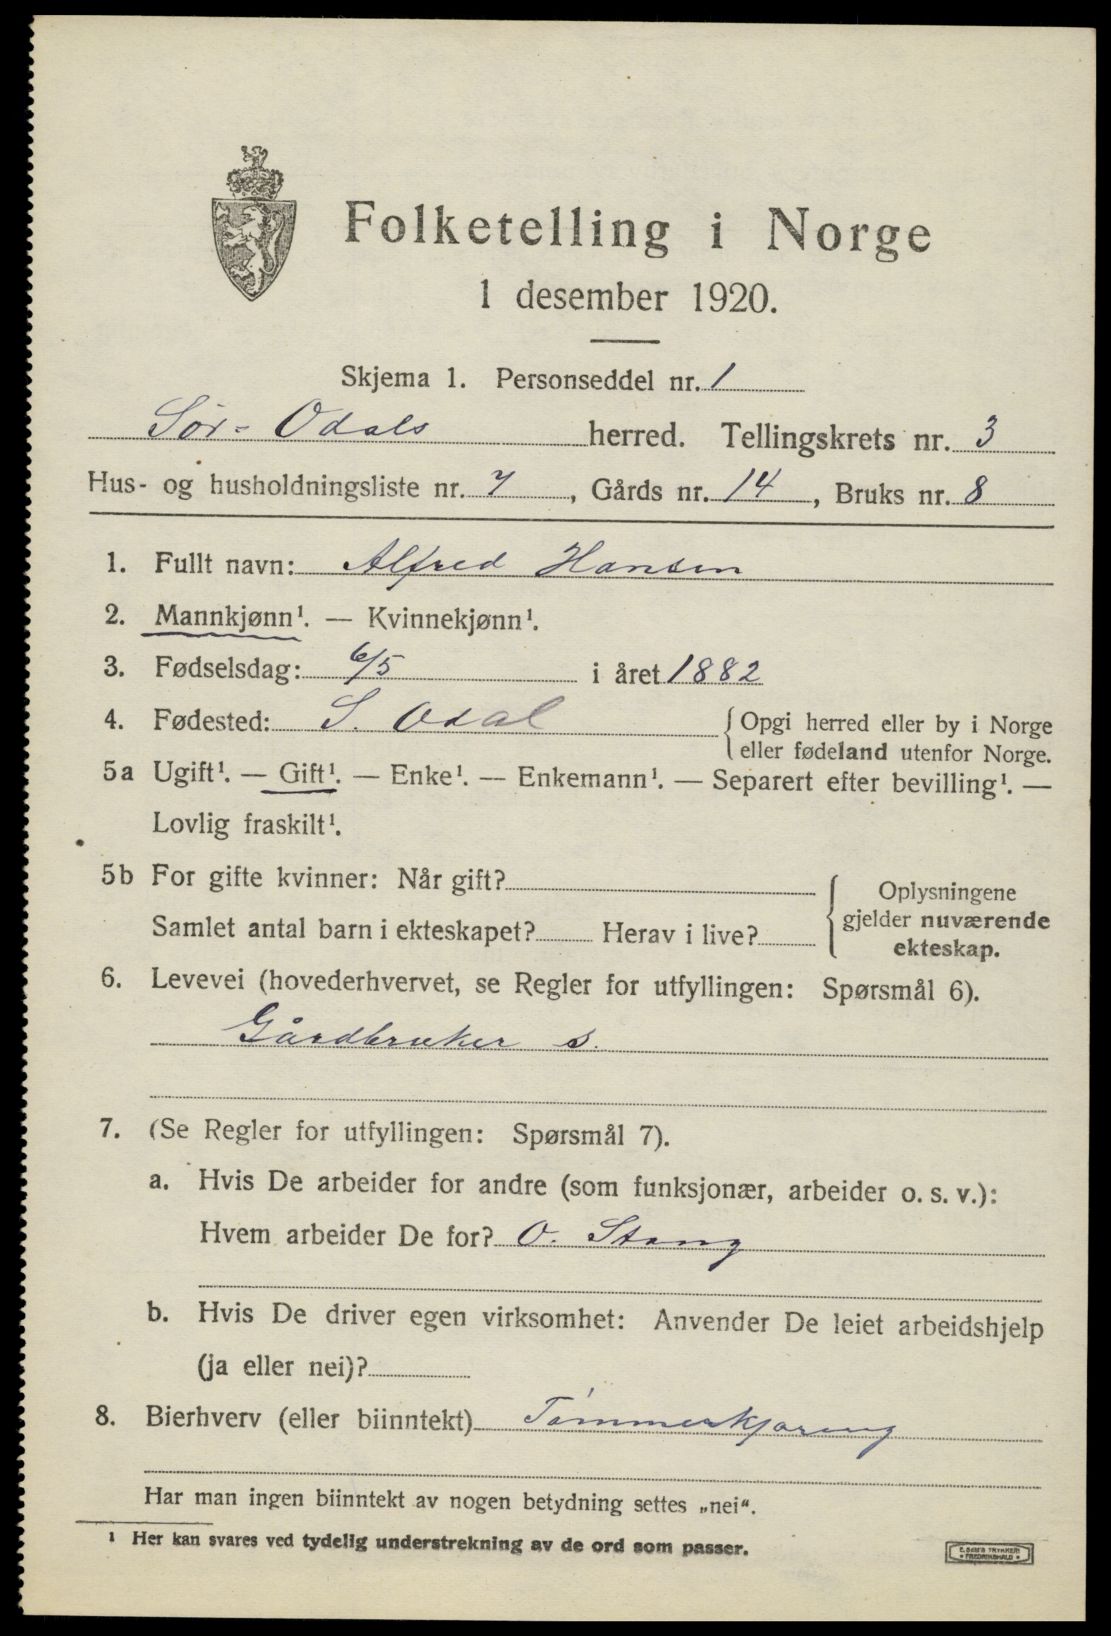 Folketelling i Norge
1 desember 1920.
Skjema 1. Personseddel nr. 1
Sør-Odals herred. Tellingskrets nr. 3
Hus- og husholdningsliste nr. 7, Gårds nr. 14, Bruks nr. 8
1. Fullt navn: Alfred Hansen
2. Mannkjønn¹. — Kvinnekjønn¹.
3. Fødselsdag: 6/5 i året 1882
4. Fødested: S. Odal { Opgi herred eller by i Norge
eller fødeland utenfor Norge.
5a Ugift¹. — Gift¹. — Enke¹. — Enkemann¹. — Separert efter bevilling¹. —
Lovlig fraskilt¹.
5b For gifte kvinner: Når gift? { Oplysningene
gjelder nuværende
Samlet antal barn i ekteskapet? Herav i live?
ekteskap.
6. Levevei (hovederhvervet, se Regler for utfyllingen: Spørsmål 6).
Gårdbruker s.
7. (Se Regler for utfyllingen: Spørsmål 7).
a. Hvis De arbeider for andre (som funksjonær, arbeider o. s. v.):
Hvem arbeider De for? O. Stang
b. Hvis De driver egen virksomhet: Anvender De leiet arbeidshjelp
(ja eller nei)?
8. Bierhverv (eller biinntekt) Tømmerkjøring
Har man ingen biinntekt av nogen betydning settes „nei“.
¹ Her kan svares ved tydelig understrekning av de ord som passer.
E. SEM'S TRYKKERI
• FREDRIKSHALD •